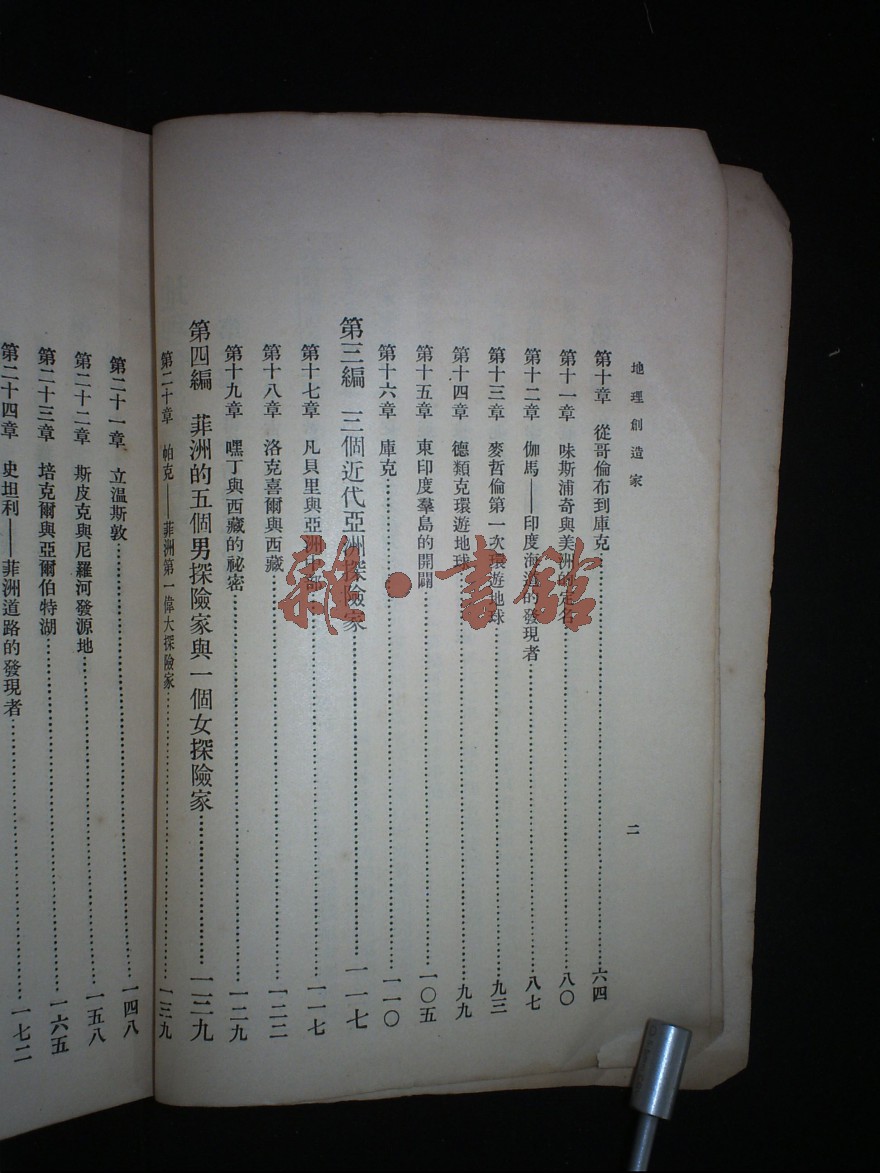 地理創造家
二
第十章 從哥倫布到庫克……六四
第十一章 味斯浦奇與美洲的定名……八〇
第十二章 伽馬——印度海道的發現者……八七
第十三章 麥哲倫第一次環遊地球……九三
第十四章 德類克環遊地球……九九
第十五章 東印度羣島的開闢……一〇五
第十六章 庫克……一一〇
第三編 三個近代亞洲探險家……一一七
第十七章 凡貝里與亞洲中部……一一七
第十八章 洛克喜爾與西藏……一二二
第十九章 嘿丁與西藏的祕密……一二九
第四編 菲洲的五個男探險家與一個女探險家……一三九
第二十章 帕克——菲洲第一偉大探險家……一三九
第二十一章 立溫斯敦……一四八
第二十二章 斯皮克與尼羅河發源地……一五八
第二十三章 培克爾與亞爾伯特湖……一六五
第二十四章 史坦利——菲洲道路的發現者……一七二
雜·書館